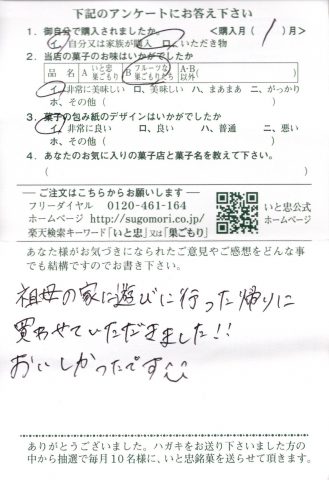 下記のアンケートにお答え下さい
1. 御自分で購入されましたか。 <購入月( 1 )月>
イ. 自分又は家族が購入 ロ. いただき物
2. 当店の菓子のお味はいかがでしたか
品 名 A いと忠巣ごもり B フルーツな巣ごもりたち A・B以外( )
イ. 非常に美味しい ロ. 美味しい ハ. まあまあ ニ. がっかり
ホ. その他( )
3. 菓子の包み紙のデザインはいかがでしたか
イ. 非常に良い ロ. 良い ハ. 普通 ニ. 悪い
ホ. その他( )
4. あなたのお気に入りの菓子店と菓子名を教えて下さい。
( )
ご注文はこちらからお願いします
フリーダイヤル 0120-461-164
ホームページ http://sugomori.co.jp/
楽天検索キーワード「いと忠」又は「巣ごもり」
いと忠公式
ホームページ
あなた様がお気づきになられたご意見やご感想をどんな事
でも結構ですのでお書き下さい。
祖母の家に遊びに行った帰りに
買わせていただきました!!
おいしかったです
ありがとうございました。ハガキをお送り下さいました方の
中から抽選で毎月10名様に、いと忠銘菓を送らせて頂きます。